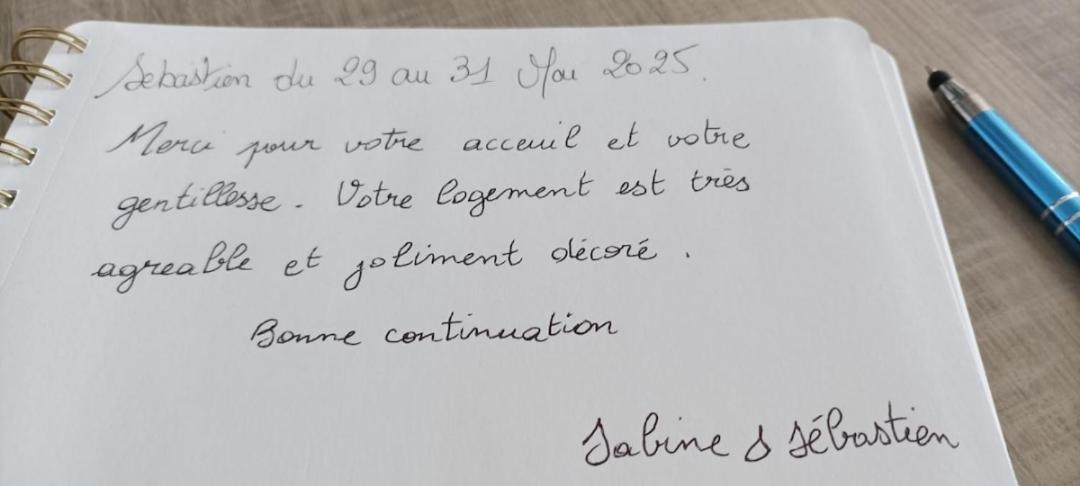 Sebastien du 29 au 31 Mai 2025.
Merci pour votre acceuil et votre
gentillesse. Votre logement est très
agreable et joliment décoré.
Bonne continuation
Sabine & Sébastien